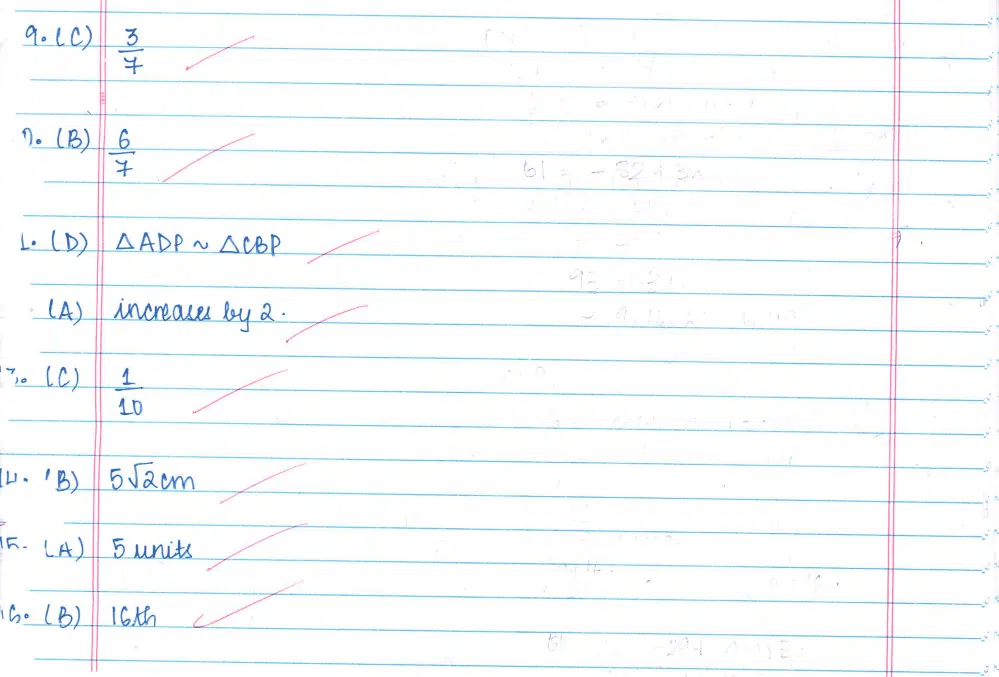 9. (C) 3/7
(B) 6/7
(D) △ADP ~ △CBP
(A) increases by 2.
(C) 1/10
14. (B) 5√2 cm
15. (A) 5 units
16. (B) 16th